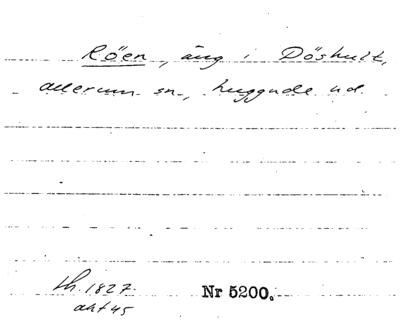 Röen, äng i Döshult,
Allerum sn., Luggude hd.
Lh. 1827.
akt 45
Nr 5200.